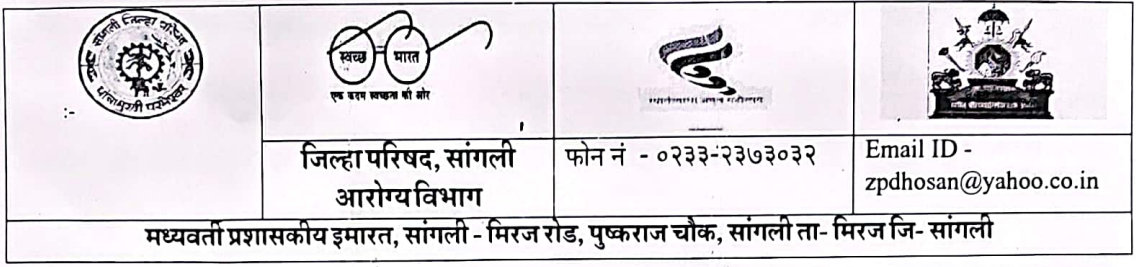 सांगली जिल्हा परिषद
स्वच्छ भारत
एक कदम स्वच्छता की ओर
:-
जिल्हा परिषद, सांगली
आरोग्य विभाग
फोन नं - ०२३३-२३७३०३२
Email ID -
zpdhosan@yahoo.co.in
मध्यवर्ती प्रशासकीय इमारत, सांगली - मिरज रोड, पुष्कराज चौक, सांगली ता- मिरज जि- सांगली